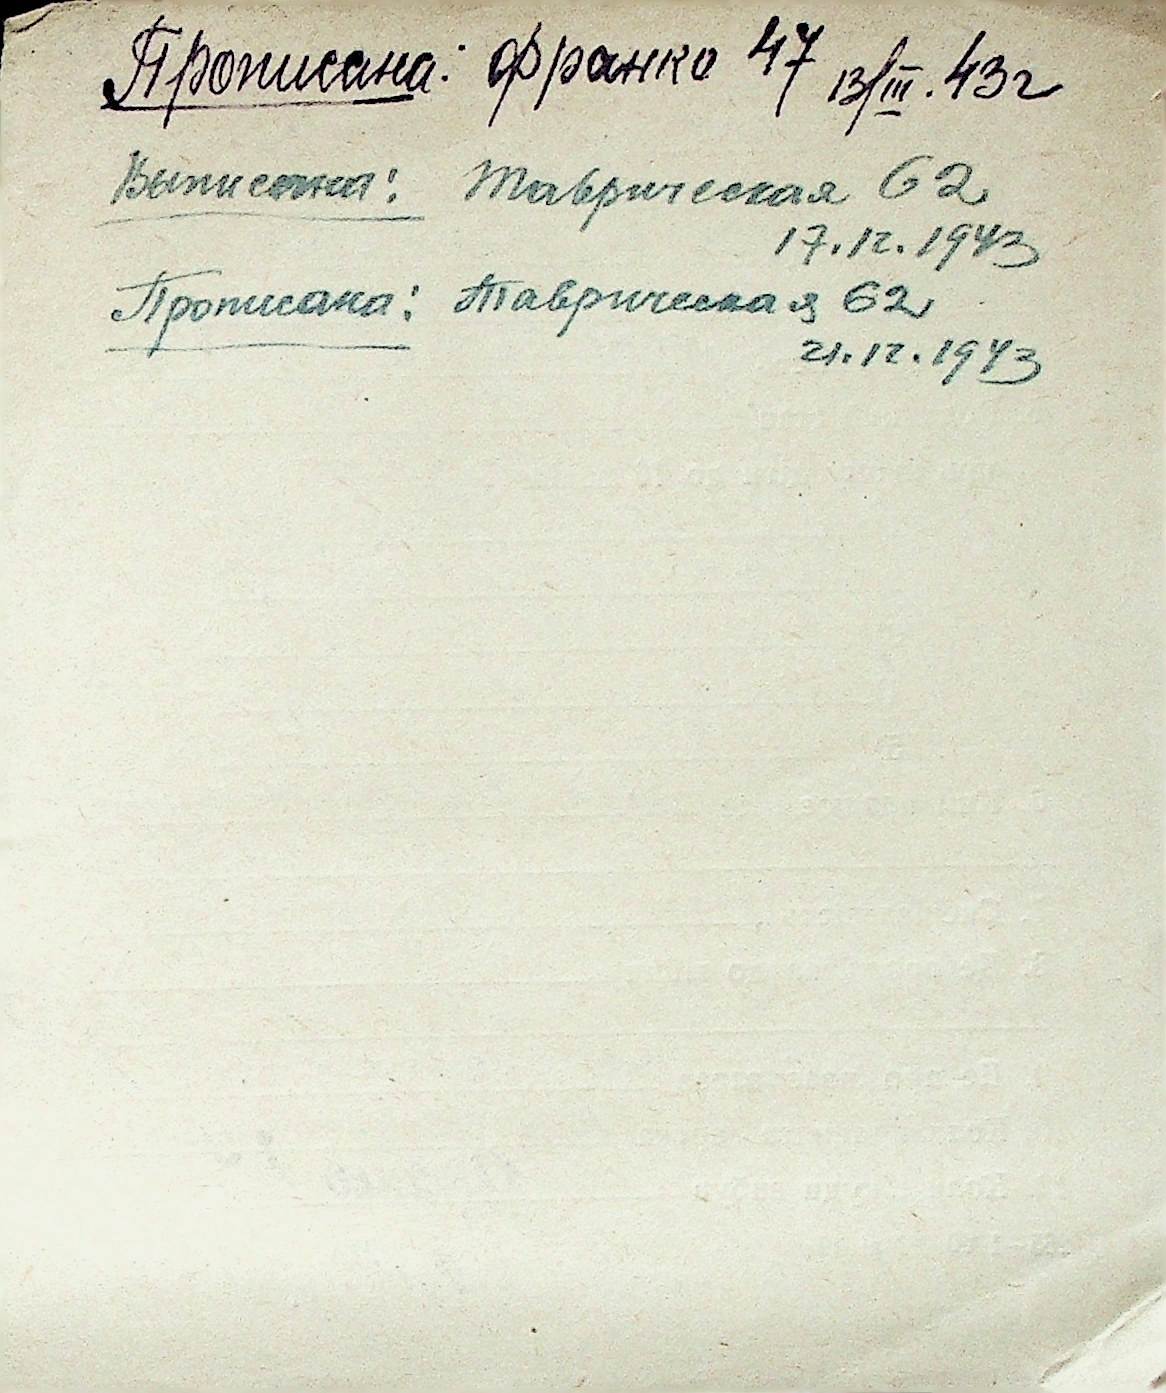 Прописана: Франко 47 13/III. 43г
Выписана: Таврическая 62
17.12.1943
Прописана: Таврическая 62
21.12.1943